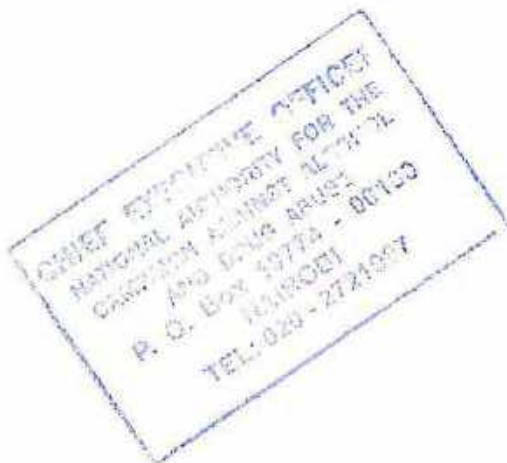 CHIEF EXECUTIVE OFFICER
NATIONAL AUTHORITY FOR THE
CAMPAIGN AGAINST ALCOHOL
AND DRUG ABUSE
P. O. Box - 00100
NAIROBI
TEL: 020 -